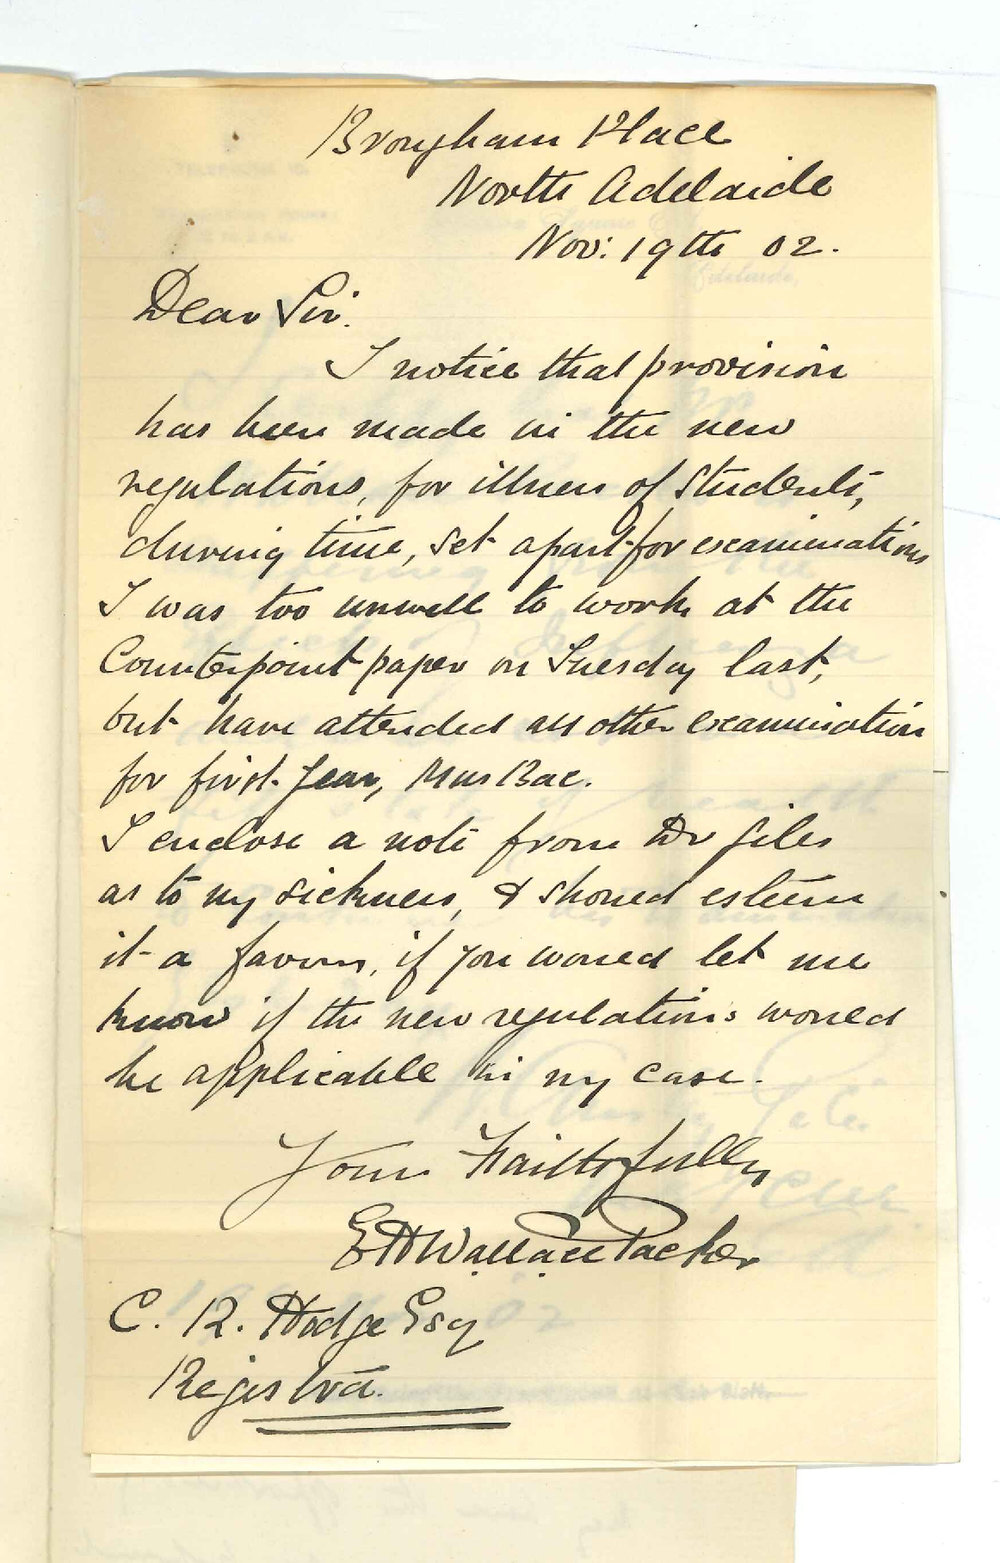 Brougham Place
North Adelaide
Nov: 19th 02.
Dear Sir.
I notice that provision
has been made in the new
regulations, for illness of Students,
during time, set apart for examinations
I was too unwell to work at the
Counterpoint paper on Tuesday last,
but have attended all other examination
for first Year, Mus Bac.
I enclose a note from Dr Giles
as to my sickness, & should esteem
it a favour, if you would let me
know if the new regulations would
be applicable in my case.
Yours Faithfully
E H Wallace Packer
C. R. Hodge Esq
Registrar.